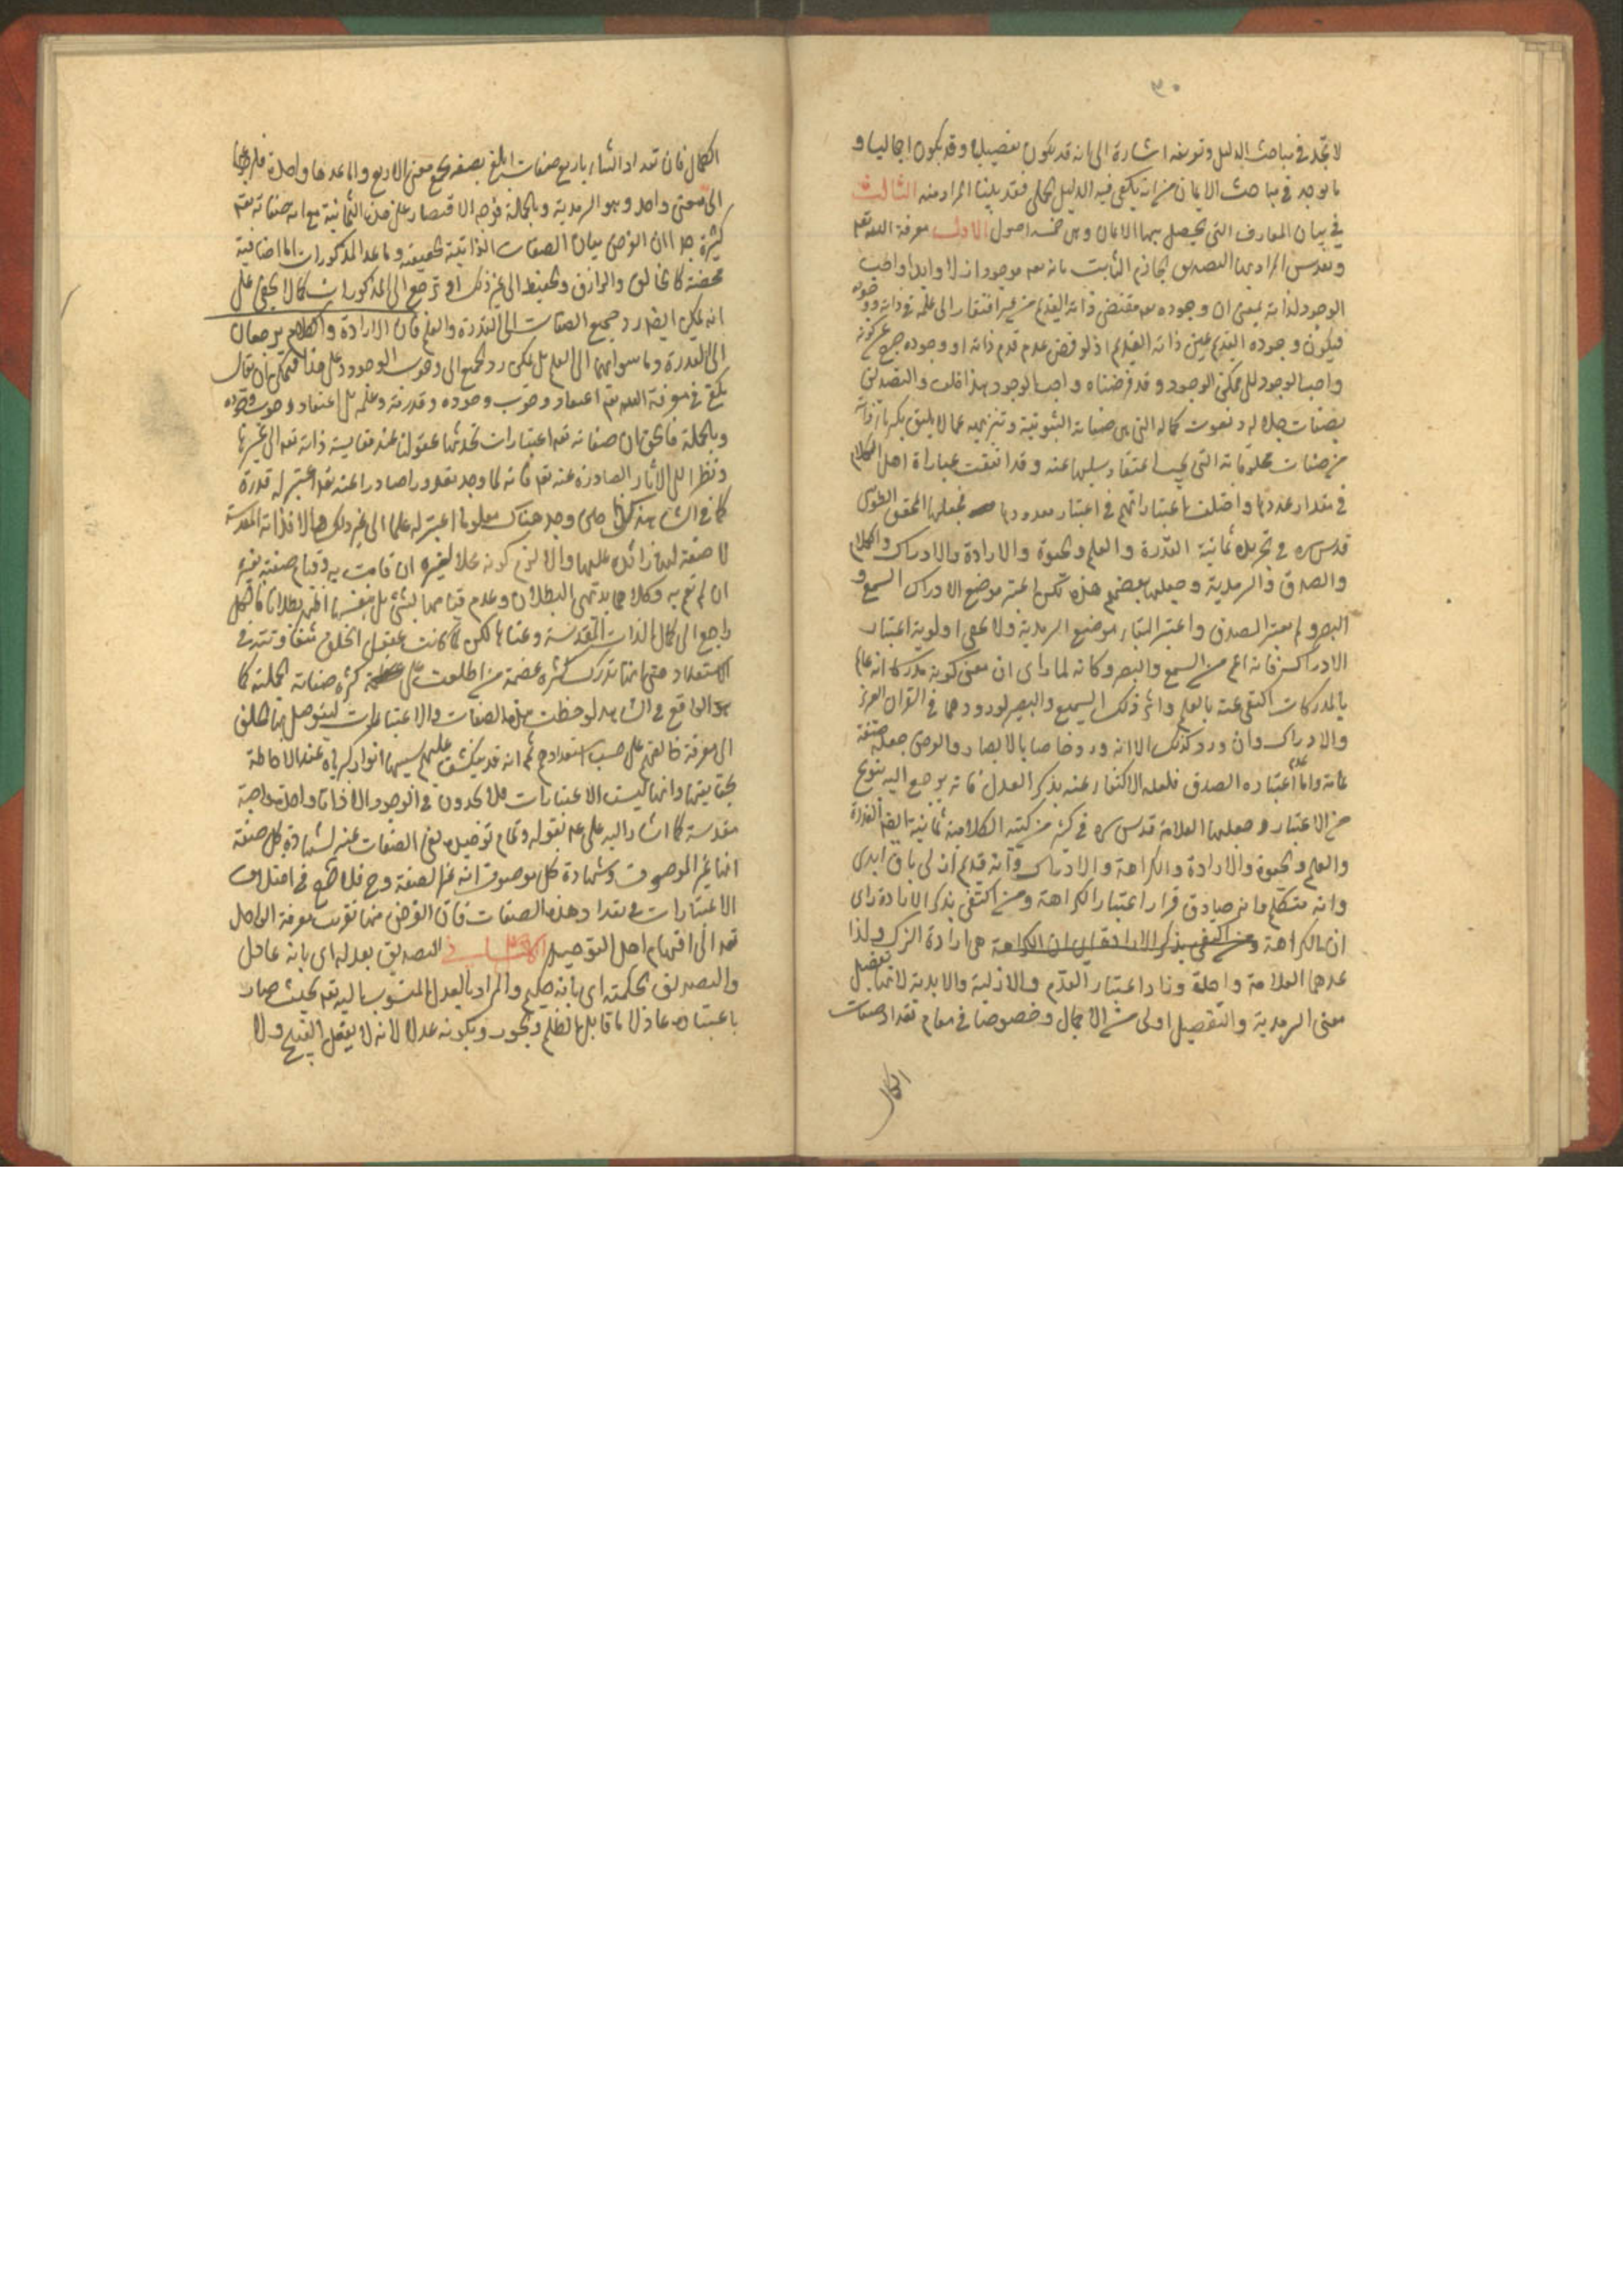 ٣٠
لا تجد في مباحث الدليل وتعريفه اشارة الى انه قد يكون تفصيليا وقد يكون اجماليا و
ما يوجد في مباحث الايمان من انه يكفي فيه الدليل الجملي فقد بينا المراد منه الثالث
في بيان المعارف التي يحصل بها الايمان وهي خمسة اصول الاول معرفة الله تعه
وتقدس المراد بها التصديق الجازم الثابت بانه تعه موجود ازلا وابدا واجب
الوجود لذاته بمعنى ان وجوده تعه مقتضى ذاته القديم من غير افتقار الى علة في ذاته و وجوده
فيكون وجوده القديم عين ذاته القديم اذ لو فرض عدم قدم ذاته او وجوده خرج عن كونه
واجب الوجود الى ممكن الوجود وقد فرضناه واجب الوجود هذا خلف والتصديق
بصفات جلاله ونعوت كماله التي هي صفاته الثبوتية وتنزيهه عما لا يليق بكبرياء ذاته
من صفات مخلوقاته التي يجب اعتقاد سلبها عنه وقد اتفقت عباراة اهل الكلام
في مقدار عددها واختلفت اعتباراتهم في اعتبار معدودها فجعلها المحقق الطوسي
قدس سره في تجريده ثمانية القدرة والعلم والحيوة والارادة والادراك والكلام
والصدق والسرمدية وجعلها بعضهم هذه لكن اعتبر موضع الادراك السمع و
البصر ولم يعتبر الصدق واعتبر البقاء موضع السرمدية ولا يخفى اولوية اعتبار
الادراك فانه اعم من السمع والبصر وكانه لما راى ان معنى كونه مدركا انه عالم
بالمدركات اكتفى عنه بالعلم واثر ذلك السميع والبصير لورودهما في القران العزيز
والادراك وان ورد كذلك الا انه ورد خاصا بالابصار والغرض جعله صفة
عامة واما عدم اعتباره الصدق فلعله الاكتفاء عنه بذكر العدل فانه يرجع اليه بنوع
من الاعتبار وجعلها العلامة قدس سره في كثير من كتبه الكلامية ثمانية ايضا القدرة
والعلم والحيوة والارادة والكراهة والادراك وانه قديم ازلي باق ابدي
وانه متكلم وانه صادق فزاد اعتبار الكراهة ومن اكتفى بذكر الارادة راى
ان الكراهة هي ارادة الترك ولذا
عدهما العلامة واحدة وزاد اعتبار القدم والازلية والابدية لانها تفصيل
معنى السرمدية والتفصيل اولى من الاجمال وخصوصا في مقام تعداد صفات
الكمال
الكمال فان تعداد الثناء باربع صفات ابلغ بصفة تجمع معنى الاربع وانما عدها واحدة لرجوعها
الى معنى واحد وهو السرمدية وبالجملة فوجه الاقتصار على هذه الثمانية مع ان صفاته تعه
كثيرة جدا ان الغرض بيان الصفات الذاتية الحقيقية وما عدا المذكورات اما اضافية
محضة كالخالق والرازق والحفيظ الى غير ذلك او ترجع الى المذكورات كما لا يخفى على
انه يمكن ايضا رد جميع الصفات الى القدرة والعلم فان الارادة والكلام يرجعان
الى القدرة وما سواهما الى العلم بل يمكن رد الجميع الى وجوب الوجود وعلى هذا فيمكن ان يقال
يكفي في معرفة الله تعه اعتقاد وجوب وجوده وقدرته وعلمه بل اعتقاد وجوب وجوده
وبالجملة فالحق ان صفاته تعه اعتبارات تحدثها عقولنا عند مقايسة ذاته تعه الى غيرها
ونظرا الى الاثار الصادرة عنه تعه فانه لما وجد مقدورا صادرا عنه تعه اعتبر له قدرة
كما في الشاهد وحين وجد هناك معلوما اعتبر له علما الى غير ذلك والا فذاته المقدسة
لا صفة لها زائدة عليها والا لزم كونه محلا لغيره ان قامت به وقيام صفته بغيره
ان لم تقم به وكلاهما بديهي البطلان وعدم قيامها بشئ بل بنفسها اظهر بطلانا فالكل
راجع الى كمال الذات المقدسة وغناها لكن لما كانت عقول الخلق متفاوتة في
الاستعداد حتى انها تدرك كثرة عظمة من اطلعت على كثرة صفاته الجميلة كما
هو الواقع في الشاهد لوحظت هذه الصفات والاعتبارات ليتوصل بها الخلق
الى معرفة خالقهم على حسب استعدادهم ثم انه قد ينكشف عليهم بسببها انوار كبريائه عند الاحاطة
بحقايقها وانها ليست الا اعتبارات فلا يجدون في الوجود الا ذاتا واحدة واجبة
مقدسة كما اشار اليه علي عه بقوله وتمام توحيده نفي الصفات عنه لشهادة كل صفة
انها غير الموصوف وشهادة كل موصوف انه غير الصفة وح فلا حرج في اختلاف
الاعتبارات في تعداد هذه الصفات فان الغرض منها تقريب معرفة الواحد
تعه الى افهام اهل التوحيد التصديق بعدله اى بانه عادل
والتصديق بحكمته اى بانه حكيم والمراد بالعدل المنسوب اليه تعه بحيث صار
باعتباره عادلا ما قابل الظلم والجور وبكونه عدلا لانه لا يفعل القبيح ولا